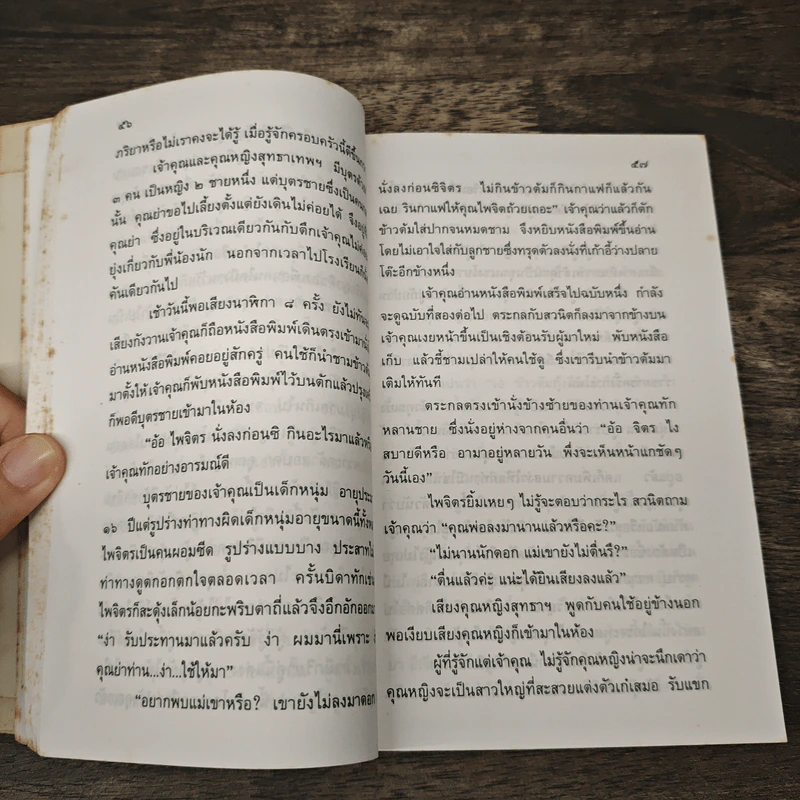 ๕๖
ภริยาหรือไม่เราคงจะได้รู้ เมื่อรู้จักครอบครัวนี้ดีขึ้น
เจ้าคุณและคุณหญิงสุทธาเทพฯ มีบุตรด้วย
๓ คน เป็นหญิง ๒ ชายหนึ่ง แต่บุตรชายซึ่งเป็น
นั้น คุณย่าขอไปเลี้ยงตั้งแต่ยังเดินไม่ค่อยได้ จึง
คุณย่า ซึ่งอยู่ในบริเวณเดียวกันกับตึกเจ้าคุณ
ยุ่งเกี่ยวกับพี่น้องนัก นอกจากเวลาไปโรงเรียน
คันเดียวกันไป
เช้าวันนี้พอเสียงนาฬิกา ๘ ครั้ง ยังไม่ทัน
เสียงกังวานเจ้าคุณก็ถือหนังสือพิมพ์เดินตรงเข้ามา
อ่านหนังสือพิมพ์คอยอยู่สักครู่ คนใช้ก็นำชามข้าว
มาตั้งให้เจ้าคุณก็พับหนังสือพิมพ์ไว้บนตักแล้ว
ก็พอดีบุตรชายเข้ามาในห้อง
“อ้อ ไพจิตร นั่งลงก่อนซิ กินอะไรมาแล้ว
เจ้าคุณทักอย่างอารมณ์ดี
บุตรชายของเจ้าคุณเป็นเด็กหนุ่ม อายุ
๑๖ ปีแต่รูปร่างท่าทางผิดเด็กหนุ่มอายุขนาดนี้
ไพจิตรเป็นคนผอมซีด รูปร่างแบบบาง ประสาท
ท่าทางดูตกอกตกใจตลอดเวลา ครั้นบิดาทัก
ไพจิตรก็สะดุ้งเล็กน้อยกะพริบตาถี่แล้วจึงอึกอักออก
“ง่า รับประทานมาแล้วครับ ง่า ผมมานี่เพราะ
คุณย่าท่าน...ง่า...ใช้ให้มา”
“อยากพบแม่เขาหรือ? เขายังไม่ลงมาดอก
๕๗
นั่งลงก่อนซิจิตร ไม่กินข้าวต้มก็กินกาแฟก็แล้วกัน
เฉย รินกาแฟให้คุณไพจิตถ้วยเถอะ” เจ้าคุณว่าแล้วก็ตัก
ข้าวต้มใส่ปากจนหมดชาม จึงหยิบหนังสือพิมพ์ขึ้นอ่าน
โดยไม่เอาใจใส่กับลูกชายซึ่งทรุดตัวลงนั่งที่เก้าอี้ว่างปลาย
โต๊ะอีกข้างหนึ่ง
เจ้าคุณอ่านหนังสือพิมพ์เสร็จไปฉบับหนึ่ง กำลัง
จะดูฉบับที่สองต่อไป ตระกลกับสวนิตก็ลงมาจากข้างบน
เจ้าคุณเงยหน้าขึ้นเป็นเชิงต้อนรับผู้มาใหม่ พับหนังสือ
เก็บ แล้วชี้ชามเปล่าให้คนใช้ดู ซึ่งเขารีบนำข้าวต้มมา
เติมให้ทันที
ตระกลตรงเข้านั่งข้างซ้ายของท่านเจ้าคุณทัก
หลานชาย ซึ่งนั่งอยู่ห่างจากคนอื่นว่า “อ้อ จิตร ไง
สบายดีหรือ อามาอยู่หลายวัน พึ่งจะเห็นหน้าแกชัดๆ
วันนี้เอง”
ไพจิตรยิ้มเหยๆ ไม่รู้จะตอบว่ากระไร สวนิตถาม
เจ้าคุณว่า “คุณพ่อลงมานานแล้วหรือคะ?”
“ไม่นานนักดอก แม่เขายังไม่ตื่นรึ?”
“ตื่นแล้วค่ะ แน่ะได้ยินเสียงลงแล้ว”
เสียงคุณหญิงสุทธาฯ พูดกับคนใช้อยู่ข้างนอก
พอเงียบเสียงคุณหญิงก็เข้ามาในห้อง
ผู้ที่รู้จักแต่เจ้าคุณ ไม่รู้จักคุณหญิงน่าจะนึกเดาว่า
คุณหญิงจะเป็นสาวใหญ่ที่สะสวยแต่งตัวเก๋เสมอ รับแขก